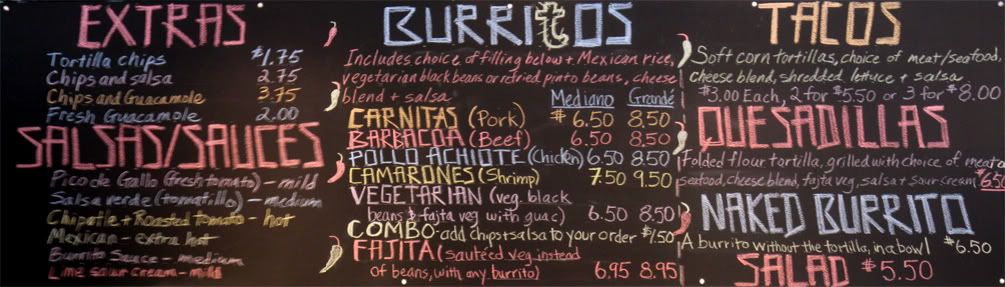 EXTRAS
Tortilla chips $1.75
Chips and salsa 2.75
Chips and Guacamole 3.75
Fresh Guacamole 2.00
SALSAS/SAUCES
Pico de Gallo (fresh tomato) - mild
Salsa verde (tomatillo) - medium
Chipotle + Roasted tomato - hot
Mexican - extra hot
Burrito Sauce - medium
Lime sour cream - mild
BURRITOS
Includes choice of filling below + Mexican rice,
vegetarian black beans or refried pinto beans, cheese
blend + salsa
Mediano Grandé
CARNITAS (Pork) $6.50 8.50
BARBACOA (Beef) 6.50 8.50
POLLO ACHIOTE (Chicken) 6.50 8.50
CAMARONES (Shrimp) 7.50 9.50
VEGETARIAN (veg. black
beans & fajita veg with guac) 6.50 8.50
COMBO - add chips + salsa to your order $1.50
FAJITA (sautéed veg. instead
of beans, with any burrito) 6.95 8.95
TACOS
Soft corn tortillas, choice of meat/seafood,
cheese blend, shredded lettuce + salsa
$3.00 Each, 2 for $5.50 or 3 for $8.00
QUESADILLAS
Folded flour tortilla, grilled with choice of meat or
seafood, cheese blend, fajita veg, salsa + sour cream $6.50
NAKED BURRITO
A burrito without the tortilla, in a bowl $6.50
SALAD $5.50